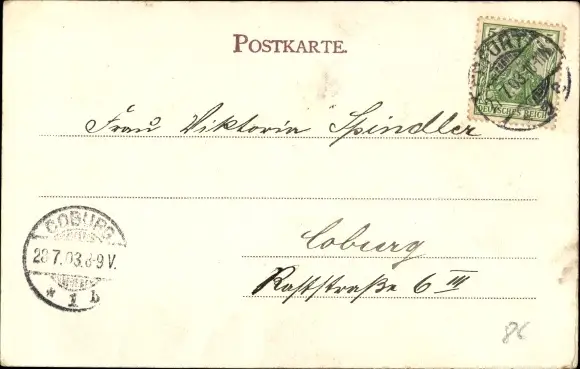 POSTKARTE.
DEUTSCHES REICH
Frau Viktoria Spindler
COBURG
28.7.03.8-9V.
* 1 b
Coburg
Raststraße 6 III
86